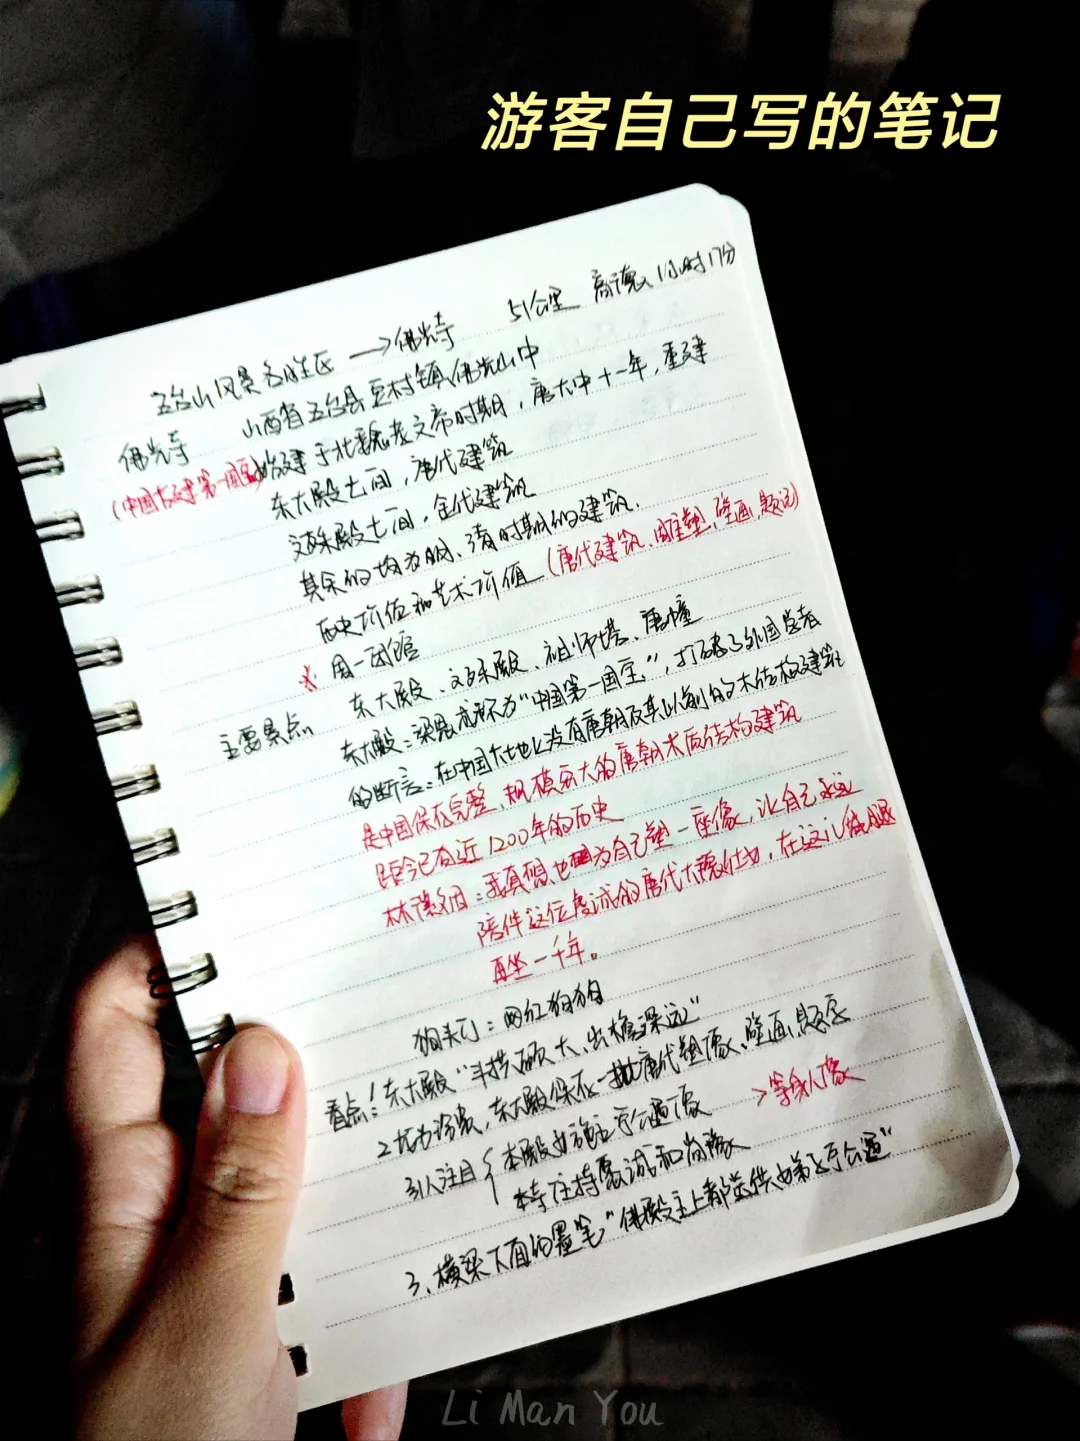 游客自己写的笔记
五台山风景名胜区 → 佛光寺 51公里 高德 1小时17分
佛光寺 山西省五台县豆村镇佛光山中
(中国古建第一国宝) 始建于北魏孝文帝时期，唐大中十一年，重建
东大殿七间，唐代建筑
文殊殿七间，金代建筑
其余的均为明、清时期的建筑.
历史价值和艺术价值 (唐代建筑、雕塑、壁画、题记)
※ 周一闭馆
主要景点 东大殿、文殊殿、祖师塔、唐幢
东大殿：梁思成称为"中国第一国宝"，打破了外国学者
的断言：在中国大地上没有唐朝及其以前的木结构建筑
是中国保存完整、规模宏大的唐朝木质结构建筑
距今已有近1200年的历史
林徽因：我真想也为自己塑一座像，让自己永远
陪伴这位虔诚的唐代大德仕女，在这儿盘腿
再坐一千年。
狗头门：网红狗狗
看点：1、东大殿"斗拱硕大、出檐深远"
2、尤为珍贵，东大殿保存一批唐代塑像、壁画、题记
引人注目 { 本殿女施主宁公遇像 > 等身人像
本寺住持愿诚和尚像
3、横梁下面的墨笔"佛殿主上都送供女弟子宁公遇"
Li Man You